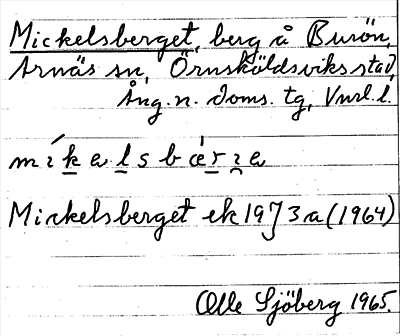 Mickelsberget, berg å Burön,
Arnäs sn, Örnsköldsviks stad,
Ång. n. doms. tg, Vnrl. l.
mıkalsbærɜa
Mickelsberget ek 19J3a (1964)
Olle Sjöberg 1965.